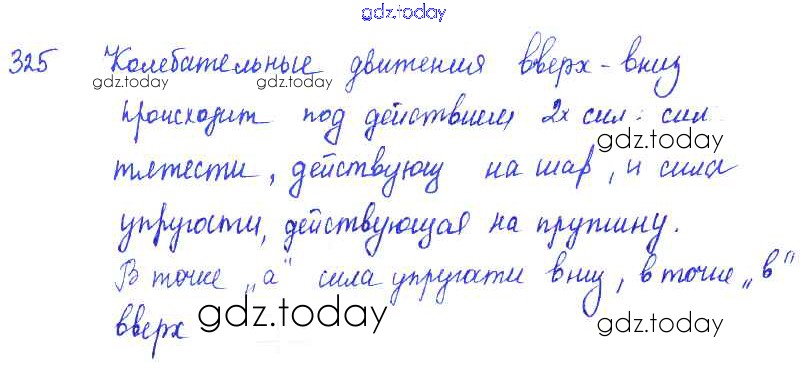 gdz.today
325 Колебательные движения вверх-вниз
gdz.today gdz.today
происходит под действием 2х сил: сил
gdz.today
тяжести, действующ на шар, и сила
упругости, действующая на пружину.
В точке „а" сила упругости вниз, в точке „в"
вверх gdz.today gdz.today